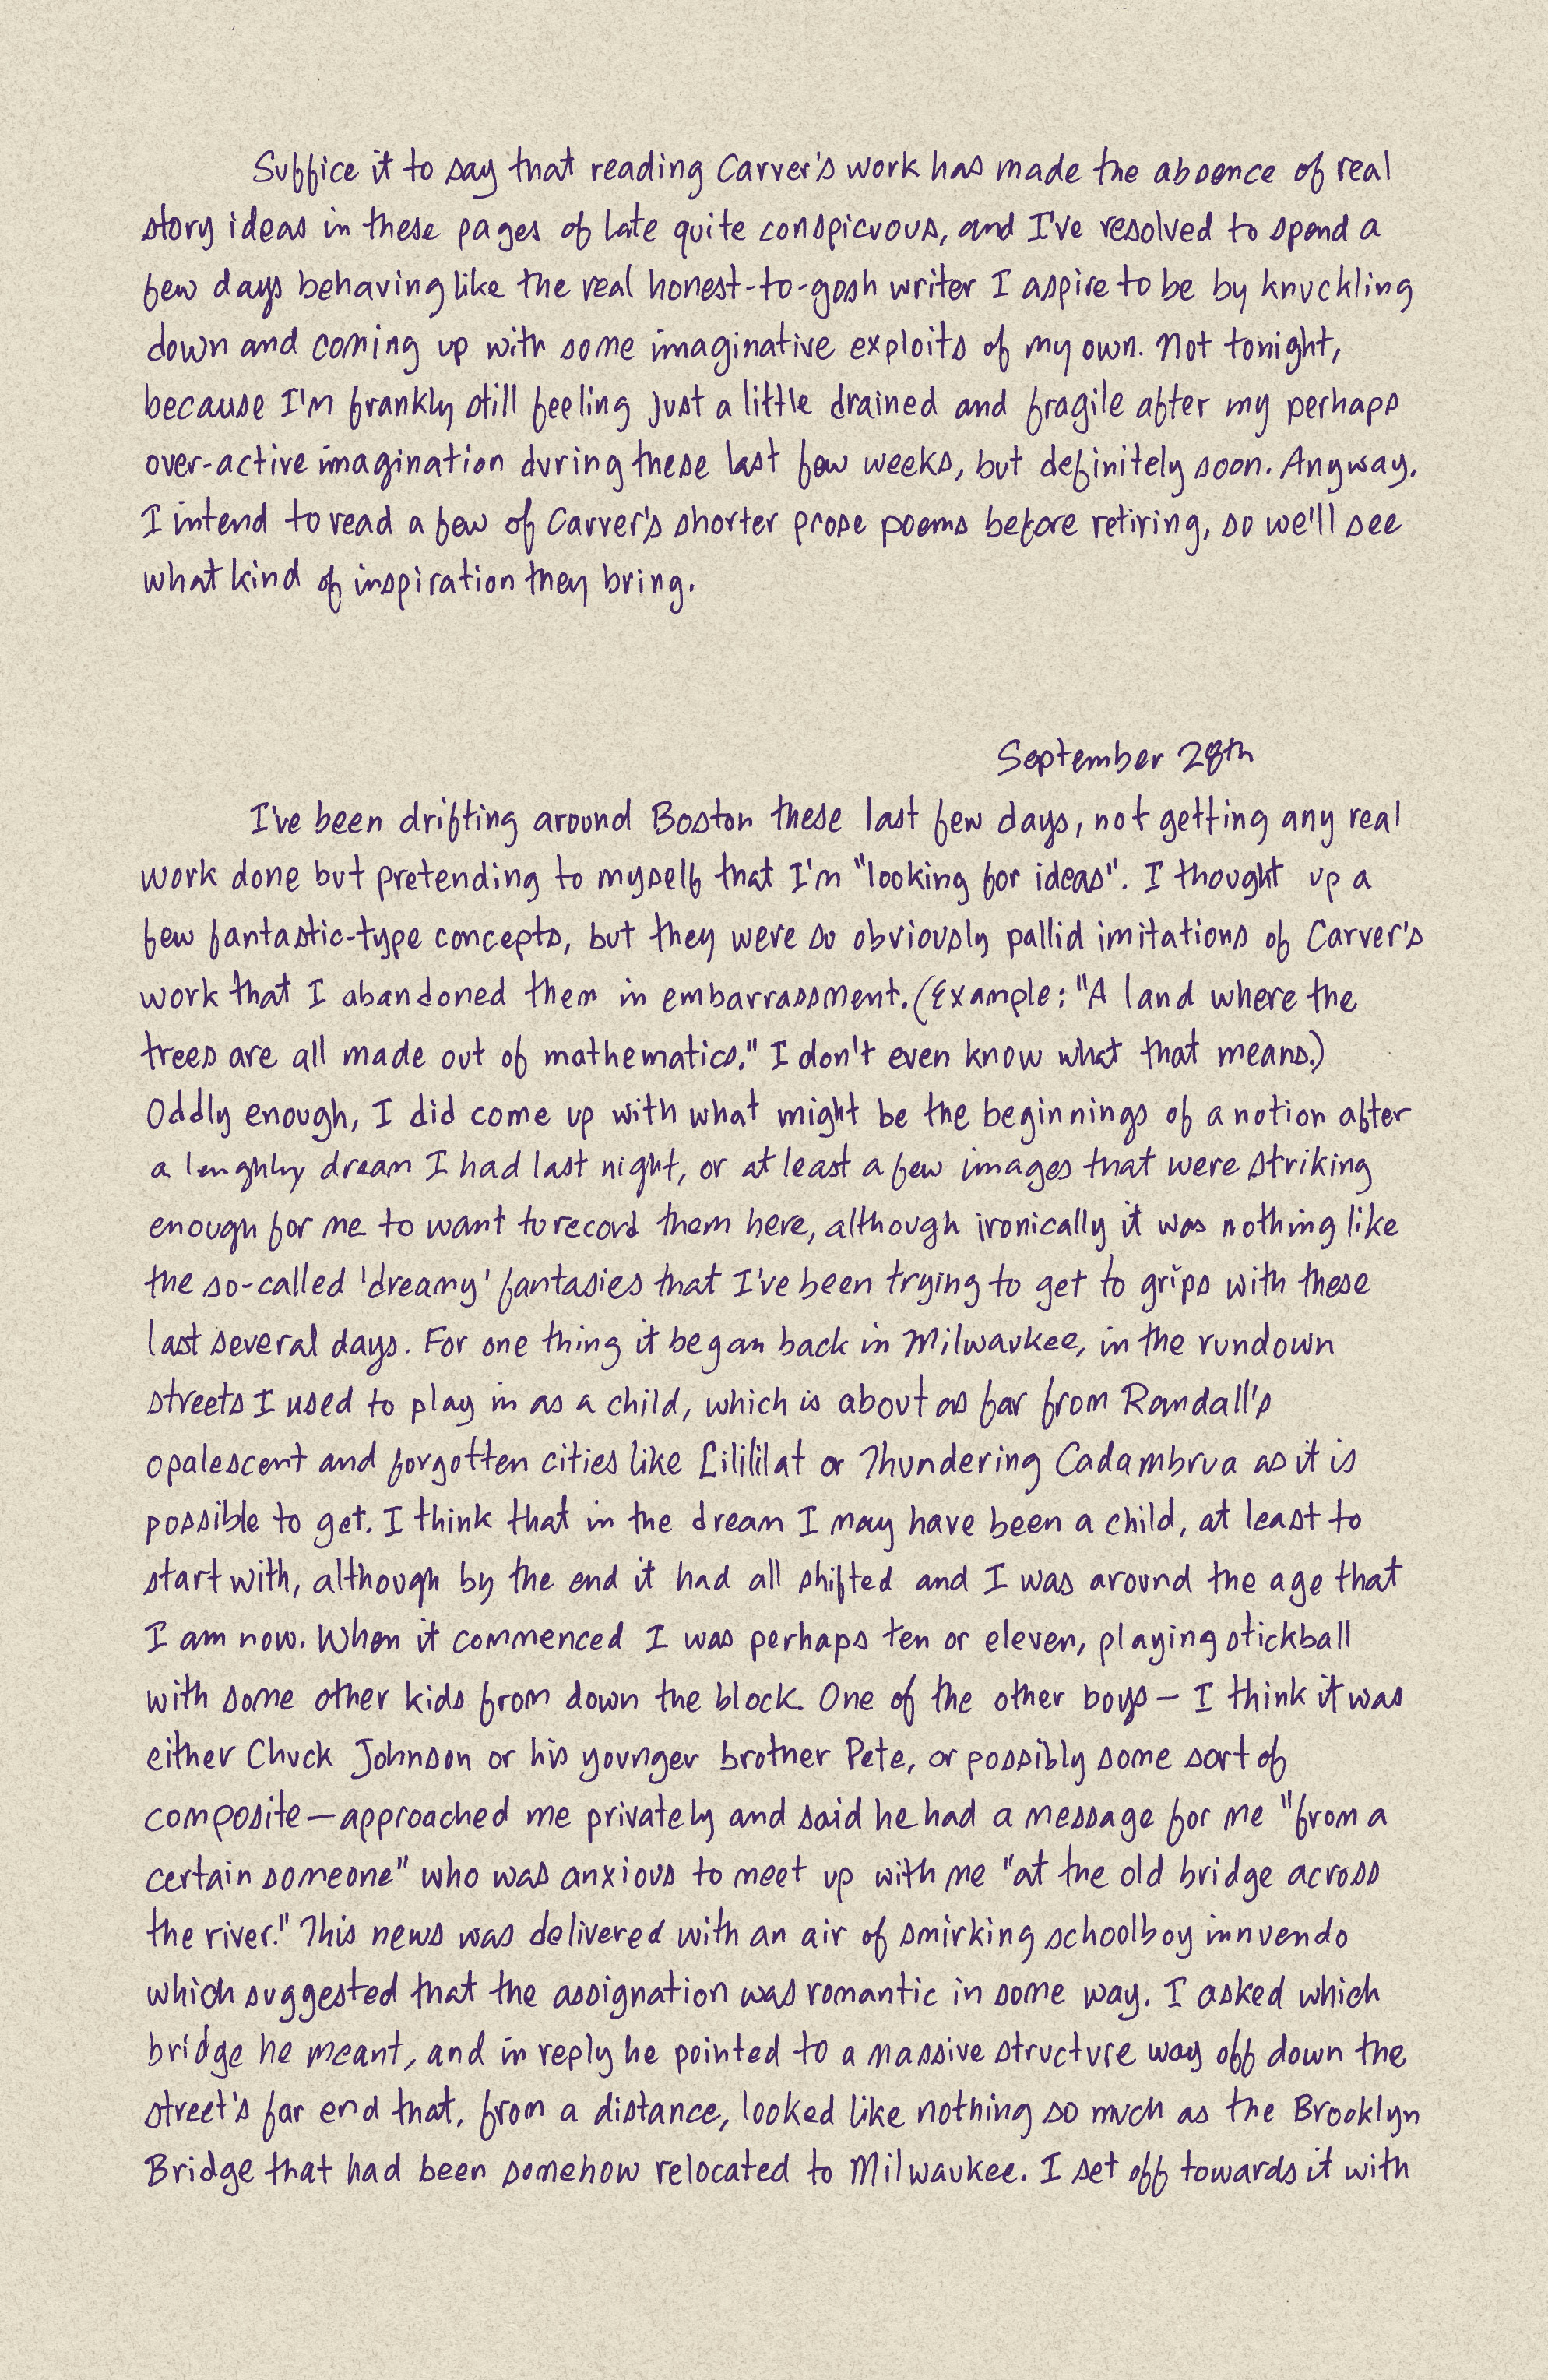 Suffice it to say that reading Carver's work has made the absence of real
story ideas in these pages of late quite conspicuous, and I've resolved to spend a
few days behaving like the real honest-to-gosh writer I aspire to be by knuckling
down and coming up with some imaginative exploits of my own. Not tonight,
because I'm frankly still feeling just a little drained and fragile after my perhaps
over-active imagination during these last few weeks, but definitely soon. Anyway.
I intend to read a few of Carver's shorter prose poems before retiring, so we'll see
what kind of inspiration they bring.
September 28th
I've been drifting around Boston these last few days, not getting any real
work done but pretending to myself that I'm "looking for ideas". I thought up a
few fantastic-type concepts, but they were so obviously pallid imitations of Carver's
work that I abandoned them in embarrassment. (Example: "A land where the
trees are all made out of mathematics." I don't even know what that means.)
Oddly enough, I did come up with what might be the beginnings of a notion after
a lenghty dream I had last night, or at least a few images that were striking
enough for me to want to record them here, although ironically it was nothing like
the so-called 'dreamy' fantasies that I've been trying to get to grips with these
last several days. For one thing it began back in Milwaukee, in the rundown
streets I used to play in as a child, which is about as far from Randall's
opalescent and forgotten cities like Lilililat or Thundering Cadambrua as it is
possible to get. I think that in the dream I may have been a child, at least to
start with, although by the end it had all shifted and I was around the age that
I am now. When it commenced I was perhaps ten or eleven, playing stickball
with some other kids from down the block. One of the other boys — I think it was
either Chuck Johnson or his younger brother Pete, or possibly some sort of
composite — approached me privately and said he had a message for me "from a
certain someone" who was anxious to meet up with me "at the old bridge across
the river." This news was delivered with an air of smirking schoolboy innuendo
which suggested that the assignation was romantic in some way. I asked which
bridge he meant, and in reply he pointed to a massive structure way off down the
street's far end that, from a distance, looked like nothing so much as the Brooklyn
Bridge that had been somehow relocated to Milwaukee. I set off towards it with